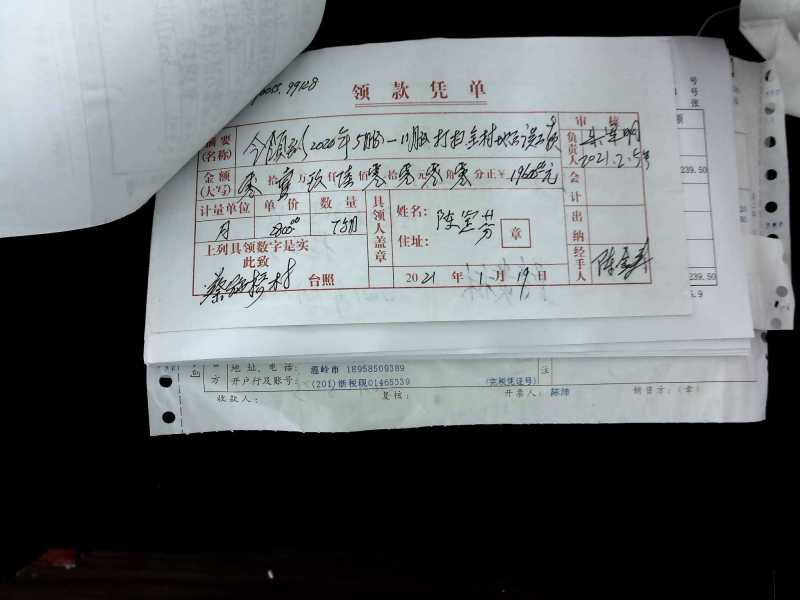 领款凭单
审 核
摘要
(名称)
今领到2020年5月份—11月份打扫全村
负责人
2021.2.5号
金额
(大写)
零拾壹万玖仟陆佰零拾零元零角零分正￥19600元
会计
计量单位 单价 数量
月 2800.00 7个月
具领人盖章
姓名:
住址:
章
出纳
上列具领数字是实
此致
台照
2021年1月19日
经手人
号
号
张
239.50
239.50
地址、电话: 温岭市 18958509389
方 开户行及账号: (201)浙税现01465339
(完税凭证号)
注
收款人:
复核:
开票人: 陈沛
销售方:(章)